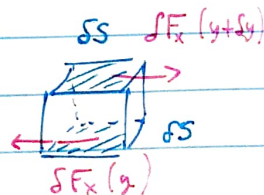 δS δFx (y+δy)
δS
δFx (y)